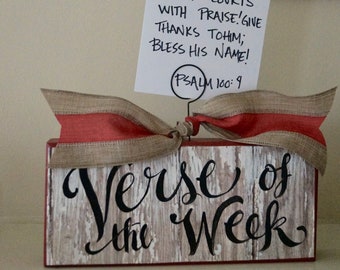 COURTS
WITH PRAISE! GIVE
THANKS TO HIM;
BLESS HIS NAME!
PSALM 100:4
Verse of
the Week